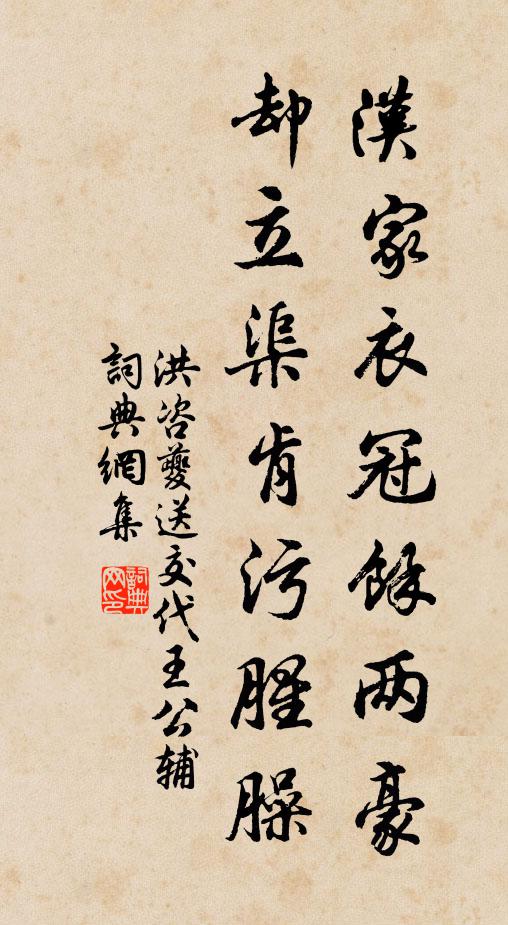 漢家衣冠餘两豪
却立渠肯污腥臊
洪咨夔送交代王公辅
詞典網集
詞典网印